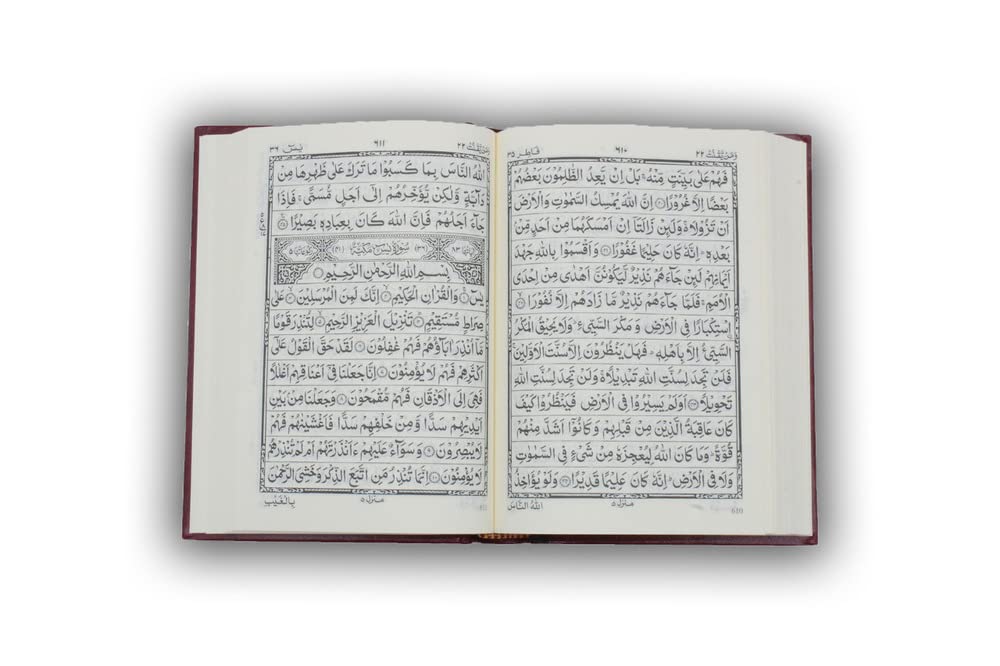 وَمَن يَّقْنُتْ ٢٢
٦١٠
فَاطِر ٣٥
فَهُمْ عَلٰى بَيِّنَتٍ مِّنْهُ ۚ بَلْ اِنْ يَّعِدُ الظّٰلِمُوْنَ بَعْضُهُمْ
بَعْضًا اِلَّا غُرُوْرًا ۝ اِنَّ اللّٰهَ يُمْسِكُ السَّمٰوٰتِ وَالْاَرْضَ
اَنْ تَزُوْلَا ۚ وَلَئِنْ زَالَتَاۤ اِنْ اَمْسَكَهُمَا مِنْ اَحَدٍ مِّنْۢ
بَعْدِهٖ ؕ اِنَّهٗ كَانَ حَلِيْمًا غَفُوْرًا ۝ وَاَقْسَمُوْا بِاللّٰهِ جَهْدَ
اَيْمَانِهِمْ لَئِنْ جَآءَهُمْ نَذِيْرٌ لَّيَكُوْنُنَّ اَهْدٰى مِنْ اِحْدَى
الْاُمَمِ ۚ فَلَمَّا جَآءَهُمْ نَذِيْرٌ مَّا زَادَهُمْ اِلَّا نُفُوْرًا ۝
اسْتِكْبَارًا فِى الْاَرْضِ وَمَكْرَ السَّيِّئِ ؕ وَلَا يَحِيْقُ الْمَكْرُ
السَّيِّئُ اِلَّا بِاَهْلِهٖ ؕ فَهَلْ يَنْظُرُوْنَ اِلَّا سُنَّتَ الْاَوَّلِيْنَ ۚ
فَلَنْ تَجِدَ لِسُنَّتِ اللّٰهِ تَبْدِيْلًا ۚ وَلَنْ تَجِدَ لِسُنَّتِ اللّٰهِ
تَحْوِيْلًا ۝ اَوَلَمْ يَسِيْرُوْا فِى الْاَرْضِ فَيَنْظُرُوْا كَيْفَ
كَانَ عَاقِبَةُ الَّذِيْنَ مِنْ قَبْلِهِمْ وَكَانُوْۤا اَشَدَّ مِنْهُمْ
قُوَّةً ؕ وَمَا كَانَ اللّٰهُ لِيُعْجِزَهٗ مِنْ شَىْءٍ فِى السَّمٰوٰتِ
وَلَا فِى الْاَرْضِ ؕ اِنَّهٗ كَانَ عَلِيْمًا قَدِيْرًا ۝ وَلَوْ يُؤَاخِذُ
اللّٰهُ النَّاسَ
مَنْزِل ٥
610
وَمَن يَّقْنُتْ ٢٢
٦١١
يٰسٓ ٣٦
اللّٰهُ النَّاسَ بِمَا كَسَبُوْا مَا تَرَكَ عَلٰى ظَهْرِهَا مِنْ
دَآبَّةٍ وَّلٰكِنْ يُّؤَخِّرُهُمْ اِلٰۤى اَجَلٍ مُّسَمًّى ۚ فَاِذَا
جَآءَ اَجَلُهُمْ فَاِنَّ اللّٰهَ كَانَ بِعِبَادِهٖ بَصِيْرًا ۝
اٰيَاتُهَا ٨٣ (٣٦) سُوْرَةُ يٰسٓ مَكِّيَّةٌ (٤١) رُكُوْعَاتُهَا ٥
بِسْمِ اللّٰهِ الرَّحْمٰنِ الرَّحِيْمِ ۝
يٰسٓ ۝ وَالْقُرْاٰنِ الْحَكِيْمِ ۝ اِنَّكَ لَمِنَ الْمُرْسَلِيْنَ ۝ عَلٰى
صِرَاطٍ مُّسْتَقِيْمٍ ۝ تَنْزِيْلَ الْعَزِيْزِ الرَّحِيْمِ ۝ لِتُنْذِرَ قَوْمًا
مَّاۤ اُنْذِرَ اٰبَآؤُهُمْ فَهُمْ غٰفِلُوْنَ ۝ لَقَدْ حَقَّ الْقَوْلُ عَلٰۤى
اَكْثَرِهِمْ فَهُمْ لَا يُؤْمِنُوْنَ ۝ اِنَّا جَعَلْنَا فِىْۤ اَعْنَاقِهِمْ اَغْلٰلًا
فَهِىَ اِلَى الْاَذْقَانِ فَهُمْ مُّقْمَحُوْنَ ۝ وَجَعَلْنَا مِنْۢ بَيْنِ
اَيْدِيْهِمْ سَدًّا وَّمِنْ خَلْفِهِمْ سَدًّا فَاَغْشَيْنٰهُمْ فَهُمْ
لَا يُبْصِرُوْنَ ۝ وَسَوَآءٌ عَلَيْهِمْ ءَاَنْذَرْتَهُمْ اَمْ لَمْ تُنْذِرْهُمْ
لَا يُؤْمِنُوْنَ ۝ اِنَّمَا تُنْذِرُ مَنِ اتَّبَعَ الذِّكْرَ وَخَشِىَ الرَّحْمٰنَ
بِالْغَيْبِ
مَنْزِل ٥